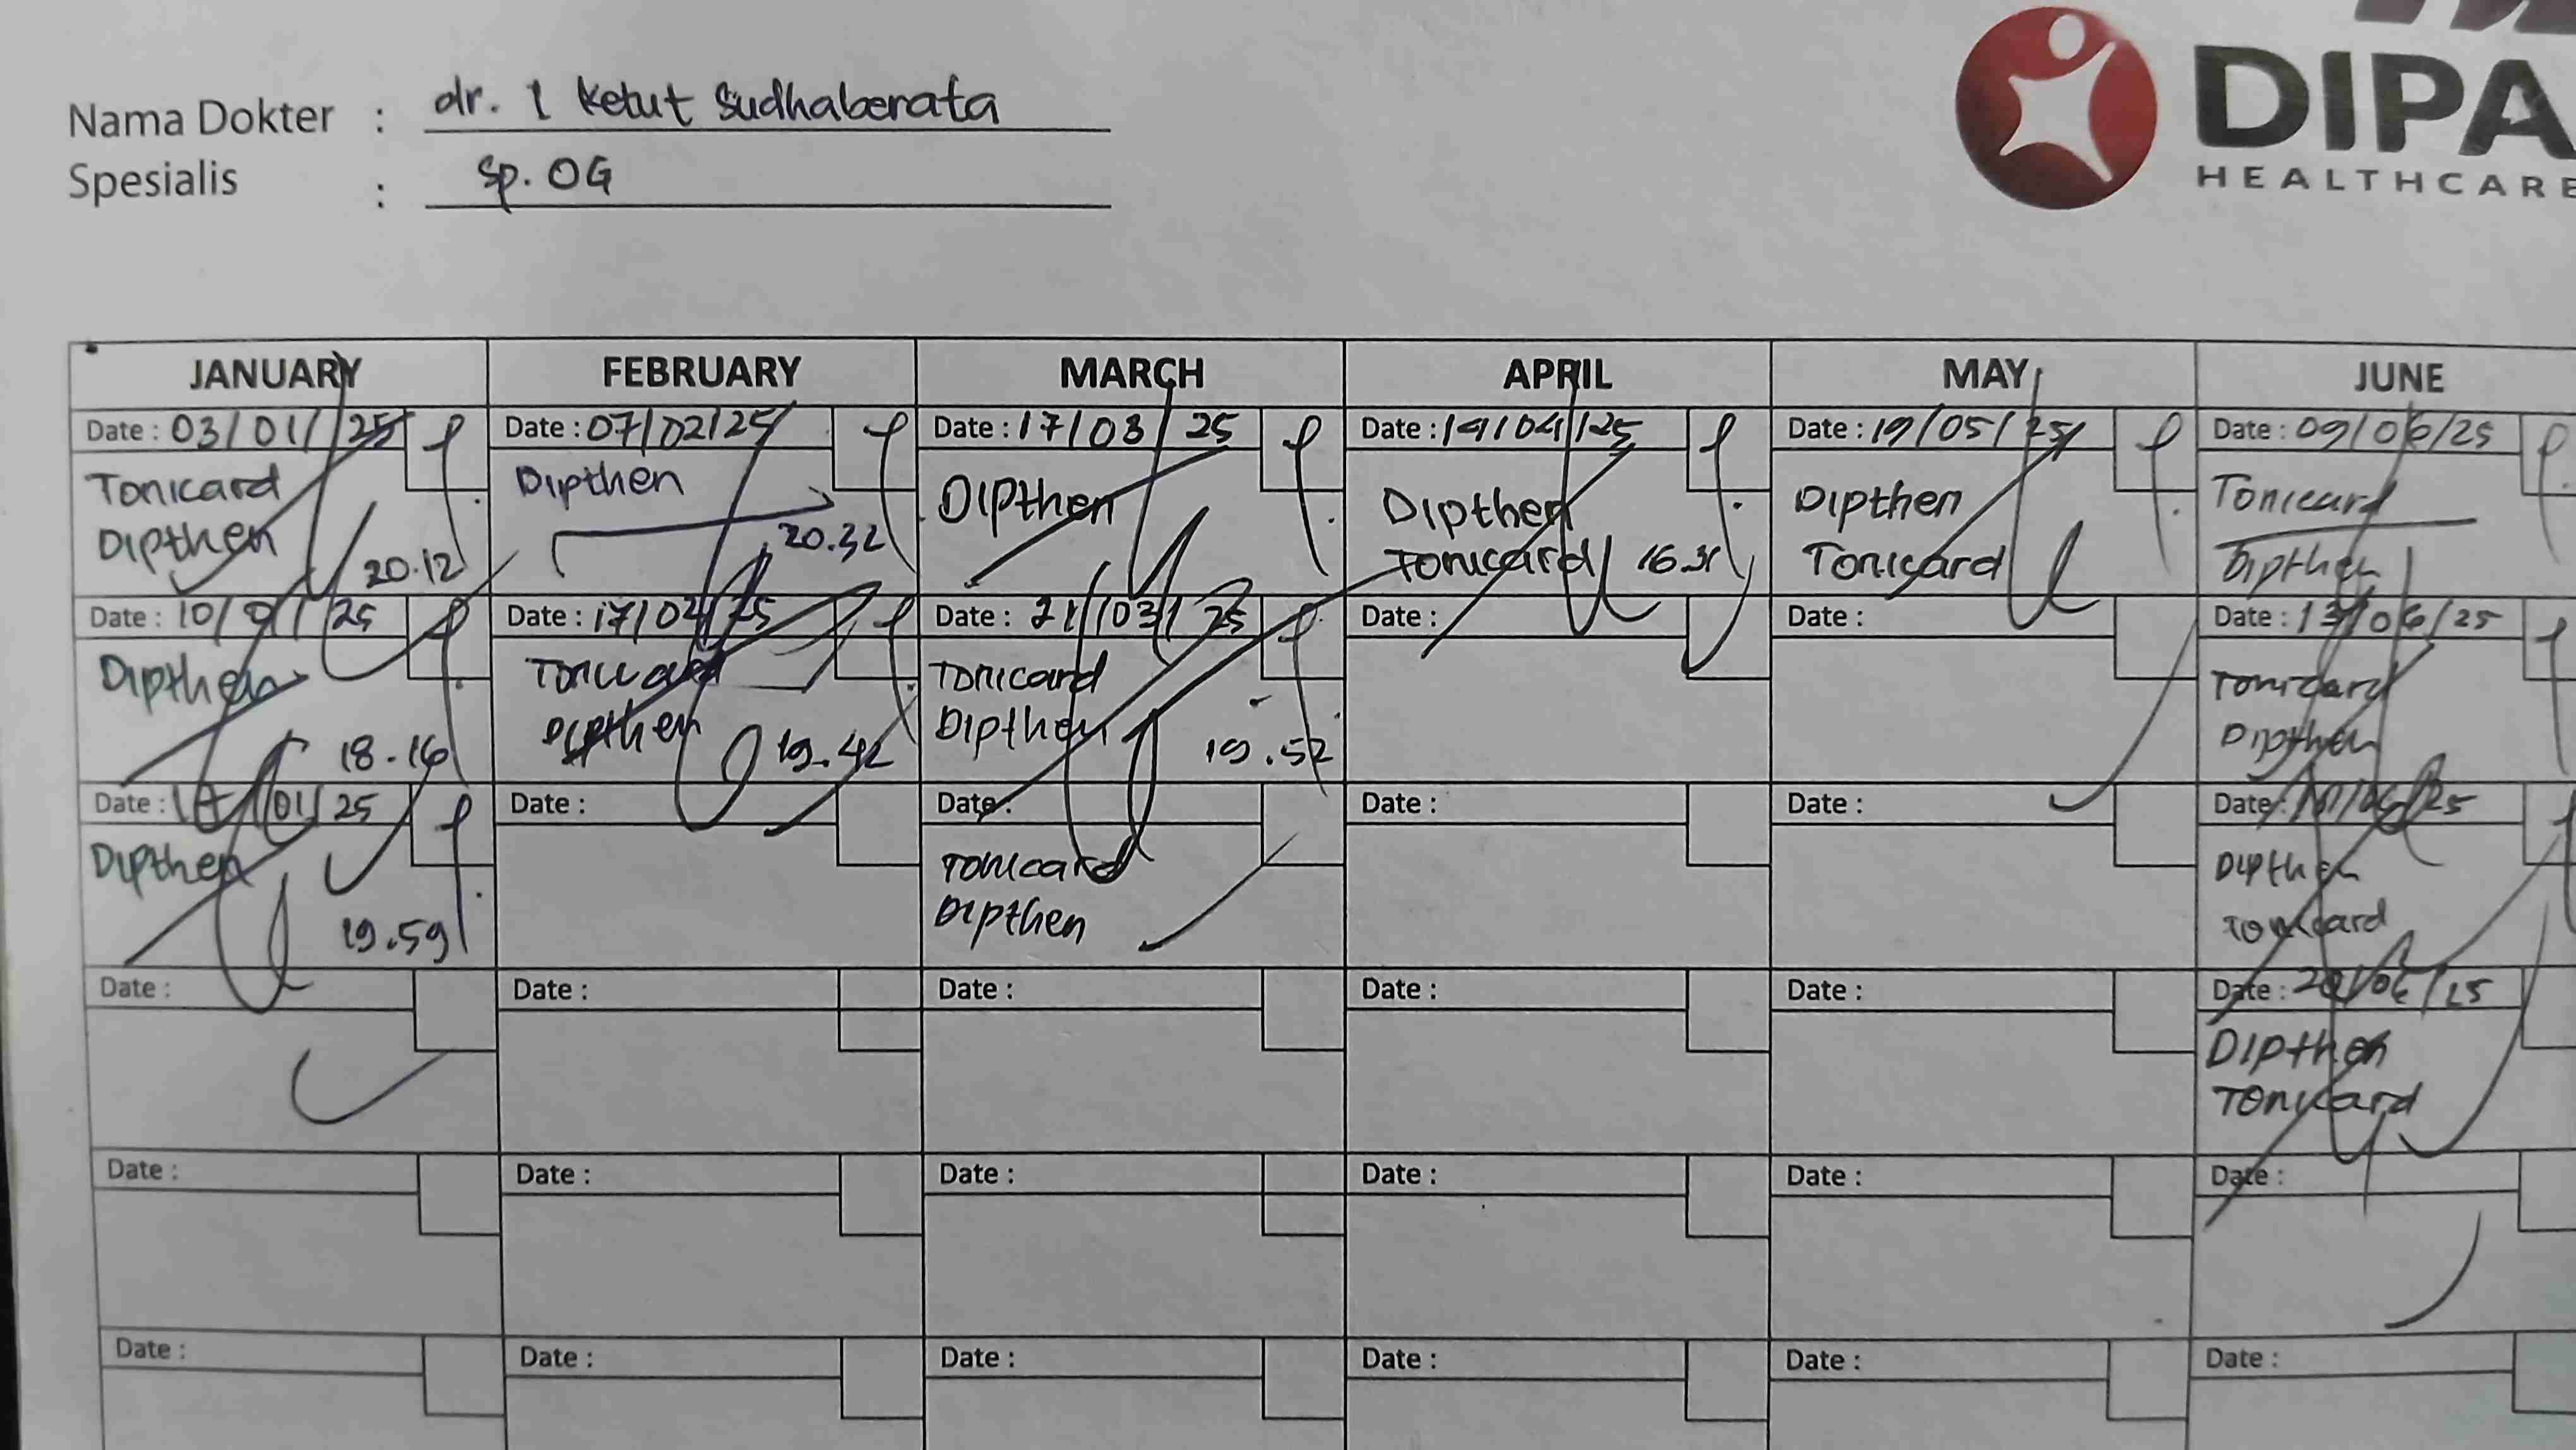 Nama Dokter : dr. I Ketut Sudhaberata
Spesialis : Sp. OG
DIPA
HEALTHCARE
JANUARY
Date : 03/01/25
Tonicard
Dipthen
20.12
Date : 10/01/25
Dipthen
18.16
Date : 17/01/25
Dipthen
19.59
Date :
Date :
Date :
FEBRUARY
Date : 07/02/25
Dipthen
20.32
Date : 17/02/25
Tonicard
Dipthen
19.42
Date :
Date :
Date :
Date :
MARCH
Date : 17/03/25
Dipthen
Date : 21/03/25
Tonicard
Dipthen
19.52
Date :
Tonicard
Dipthen
Date :
Date :
Date :
APRIL
Date : 19/04/25
Dipthen
Tonicard 16.31
Date :
Date :
Date :
Date :
Date :
MAY
Date : 19/05/25
Dipthen
Tonicard
Date :
Date :
Date :
Date :
Date :
JUNE
Date : 09/06/25
Tonicard
Dipthen
Date : 13/06/25
Tonicard
Dipthen
Date :
Dipthen
Tonicard
Date :
Dipthen
Tonicard
Date :
Date :